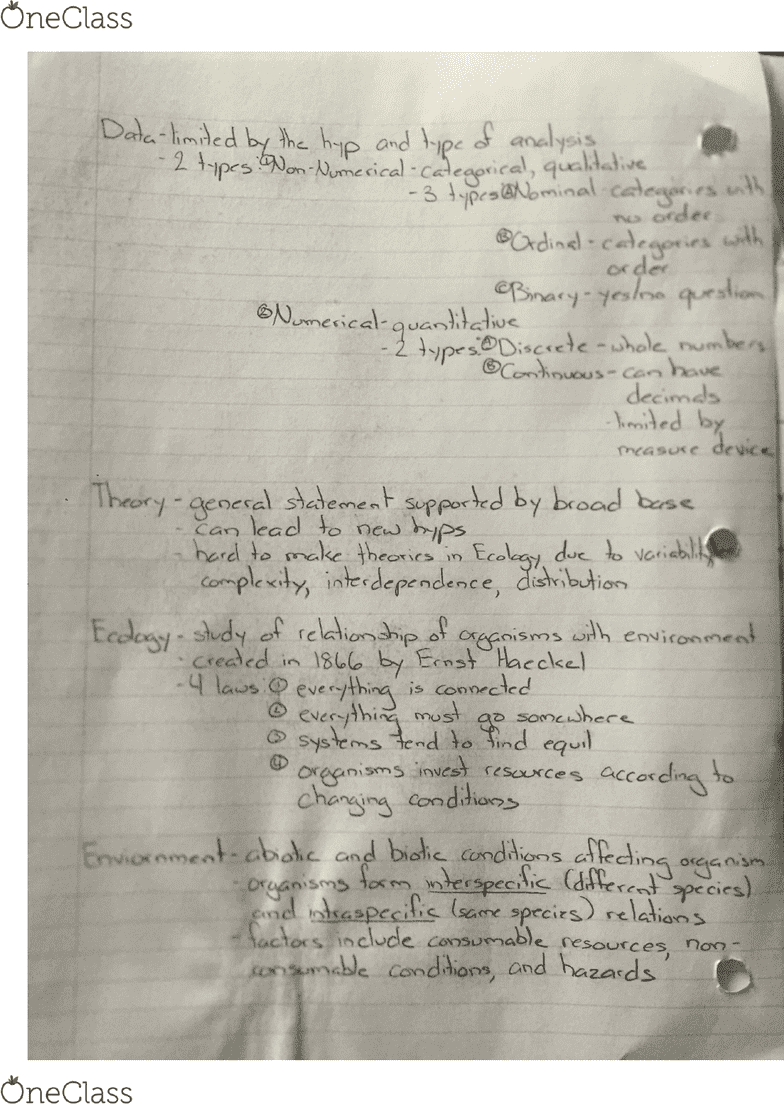 OneClass
Data-limited by the hyp and type of analysis
- 2 types: ① Non-Numerical-categorical, qualitative
- 3 types Ⓐ Nominal-categories with
no order
Ⓑ Ordinal-categories with
order
Ⓒ Binary-yes/no question
② Numerical-quantitative
- 2 types: Ⓐ Discrete-whole numbers
Ⓑ Continuous-can have
decimals
-limited by
measure device
Theory-general statement supported by broad base
- can lead to new hyps
- hard to make theories in Ecology due to variability
complexity, interdependence, distribution
Ecology-study of relationship of organisms with environment
- created in 1866 by Ernst Haeckel
- 4 laws: ① everything is connected
② everything must go somewhere
③ systems tend to find equil
④ organisms invest resources according to
changing conditions
Enviornment-abiotic and biotic conditions affecting organism
- organisms form interspecific (different species)
and intraspecific (same species) relations
- factors include consumable resources, non-
consumable conditions, and hazards
OneClass